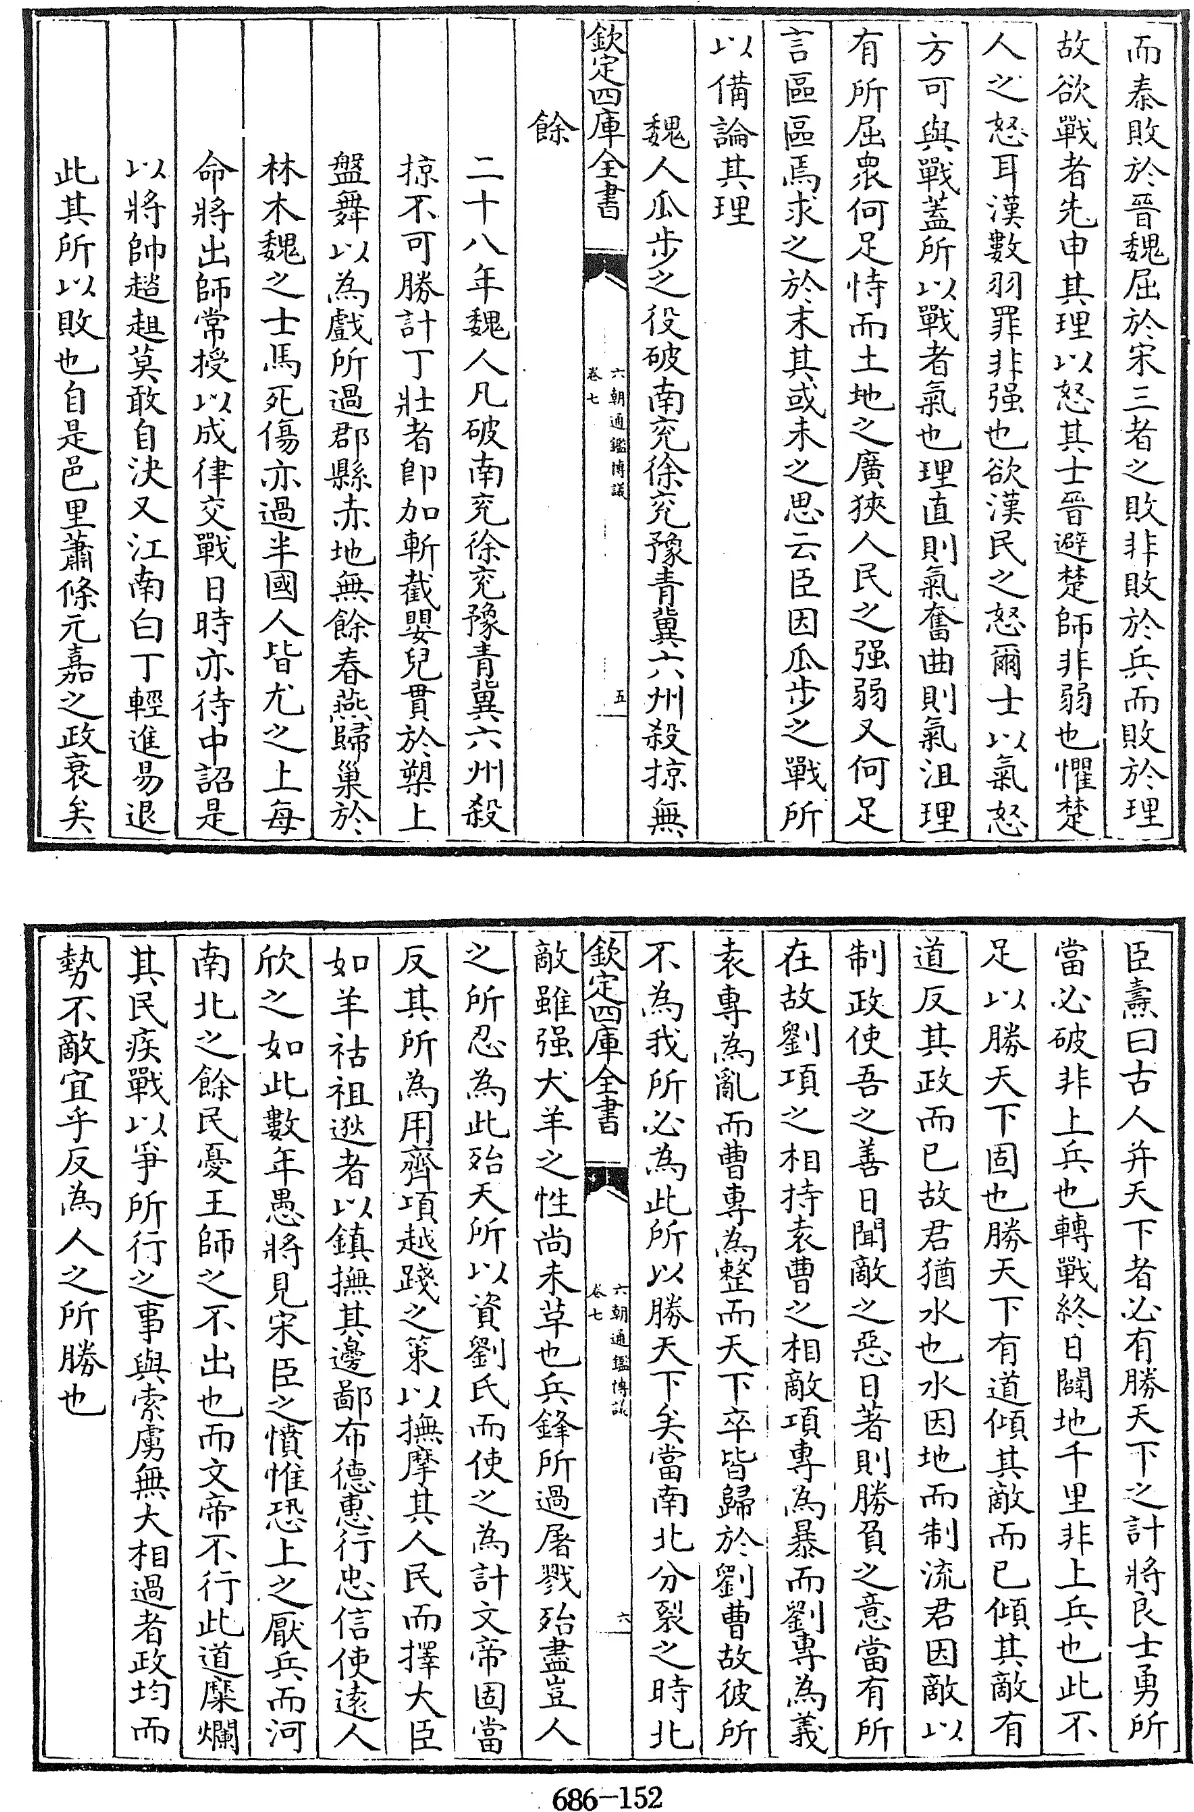 而秦敗於晉魏屈於宋三者之敗非敗於兵而敗於理
故欲戰者先申其理以怒其士晉避楚師非弱也懼楚
人之怒耳漢數羽罪非强也欲漢民之怒爾士以氣怒
方可與戰葢所以戰者氣也理直則氣奮曲則氣沮理
有所屈衆何足恃而土地之廣狹人民之强弱又何足
言區區焉求之於末其或未之思云臣因瓜步之戰所
以備論其理
魏人瓜步之役破南兗徐兗豫青冀六州殺掠無
欽定四庫全書
六朝通鑑博議
卷七
五
餘
二十八年魏人凡破南兗徐兗豫青冀六州殺
掠不可勝計丁壯者即加斬截嬰兒貫於槊上
盤舞以為戲所過郡縣赤地無餘春燕歸巢於
林木魏之士馬死傷亦過半國人皆尤之上每
命將出師常授以成律交戰日時亦待中詔是
以將帥趑趄莫敢自決又江南白丁輕進易退
此其所以敗也自是邑里蕭條元嘉之政衰矣
臣燾曰古人幷天下者必有勝天下之計將良士勇所
當必破非上兵也轉戰終日闢地千里非上兵也此不
足以勝天下固也勝天下有道傾其敵而已傾其敵有
道反其政而已故君猶水也水因地而制流君因敵以
制政使吾之善日聞敵之惡日著則勝負之意當有所
在故劉項之相持袁曹之相敵項專為暴而劉專為義
袁專為亂而曹專為整而天下卒皆歸於劉曹故彼所
不為我所必為此所以勝天下矣當南北分裂之時北
欽定四庫全書
六朝通鑑博議
卷七
六
敵雖强犬羊之性尚未草也兵鋒所過屠戮殆盡豈人
之所忍為此殆天所以資劉氏而使之為計文帝固當
反其所為用齊項越踐之策以撫摩其人民而擇大臣
如羊祜祖逖者以鎮撫其邊鄙布德惠行忠信使逺人
欣之如此數年愚將見宋臣之憤惟恐上之厭兵而河
南北之餘民憂王師之不出也而文帝不行此道糜爛
其民疾戰以爭所行之事與索虜無大相過者政均而
勢不敵宜乎反為人之所勝也
686-152